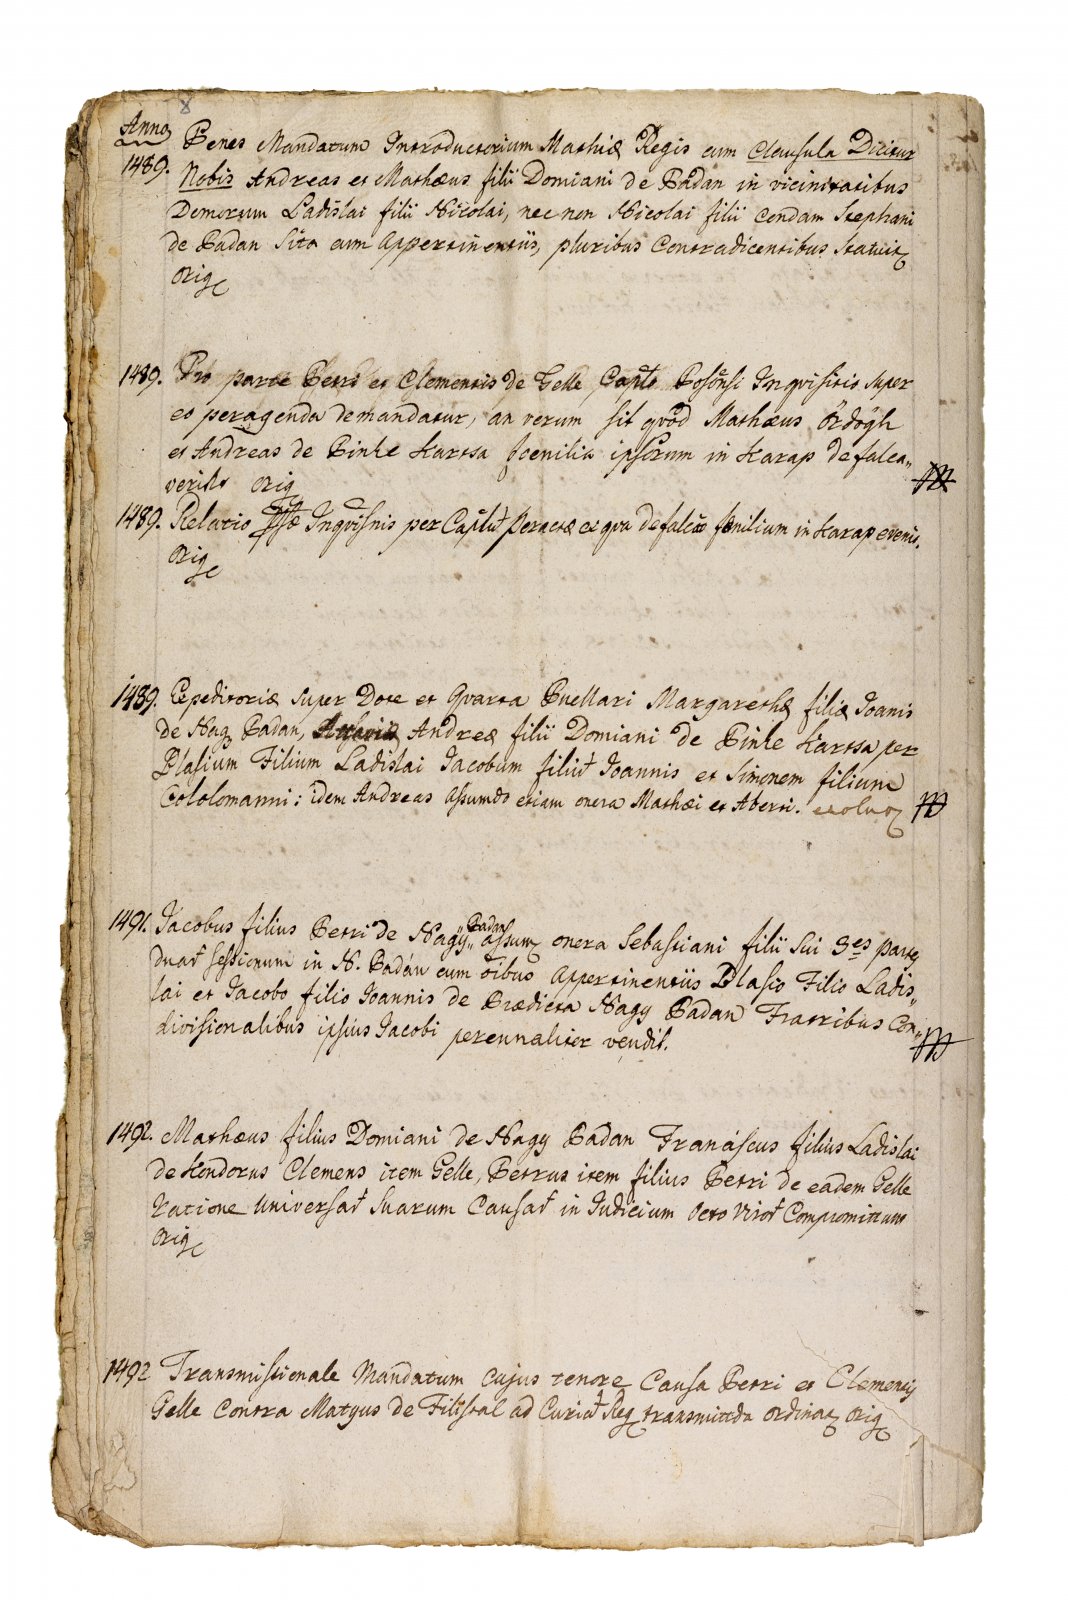 8
Anno
1489. Penes Mandatum Introductorium Mathiæ Regis cum Clausula Dicitur
Nobis Andreas et Mathæus filii Domiani de Padan in vicinitatibus
Domorum Ladislai filii Nicolai, nec non Nicolai filii condam Stephani
de Padan Sita cum Appertinentiis, pluribus Contradicentibus Statuit
Orig
1489. Pro parte Petri et Clementis de Gelle Capto Posonsi Inqvisitio super
eo peragenda demandatur, an verum sit qvod Mathæus Ördögh
et Andreas de Pinke Kartsa foenilia ipsorum in Karap defalca„
verint orig
1489. Relatio Inqvisnis per Captlu peractæ et qva defalcao fenilium in Karap evenit.
Orig
1489. Expeditoriæ super Dote et Qvarta Puellari Margarethæ filiæ Ioanis
de Nag Padan, Andreæ filii Domiani de Pinke Kartsa per
Blasium Filium Ladislai Jacobum filiu Joannis et Simonem filium
Cololomanni: idem Andreas assumdo etiam onera Mathæi et Aberti.
1491. Jacobus filius Petri de Nagy„ Padan assum onera Sebastiani filii sui 3es parte
duar sessionum in N. Padan cum oibus Appertinentiis Blasio Filio Ladis„
lai et Jacobo filio Joannis de Prædicta Nagy Padan Fratribus Con„
divisionalibus ipsius Jacobi perennaliter vendit.
1492. Mathæus filius Domiani de Nagy Padan Franciscus filius Ladislai
de Kondorus Clemens item Gelle, Petrus item filius Petri de eadem Gelle
Ratione Universar Suarum Causar in Iudicium Octo Viror Compromittunt
Orig
1492 Transmissionale Mandatum cujus tenore Causa Petri et Clementis
Gelle Contra Matyus de Filistal ad Curia Reg transmittda ordinat Orig